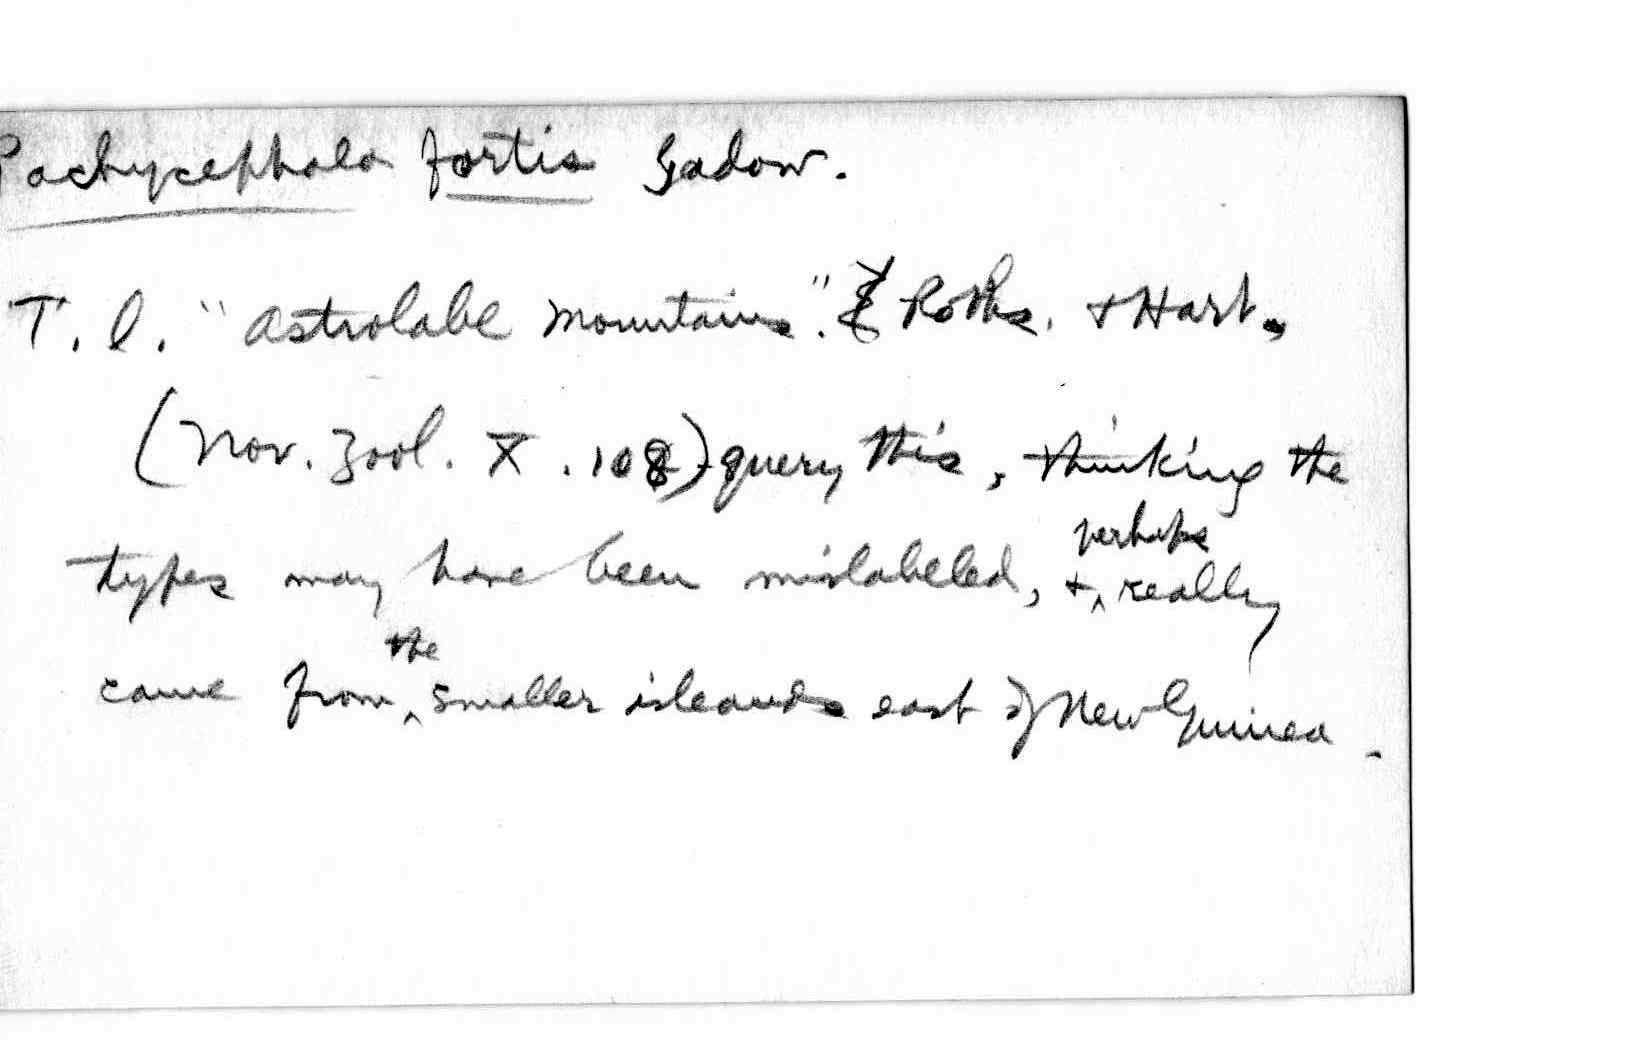 Pachycephala fortis Gadow.
T. l. "Astrolabe Mountains". Roths. + Hart.
(Nov. Zool. X. 108) query this, thinking the
types may have been mislabeled, + perhaps really
came from the smaller isleands east of New Guinea.